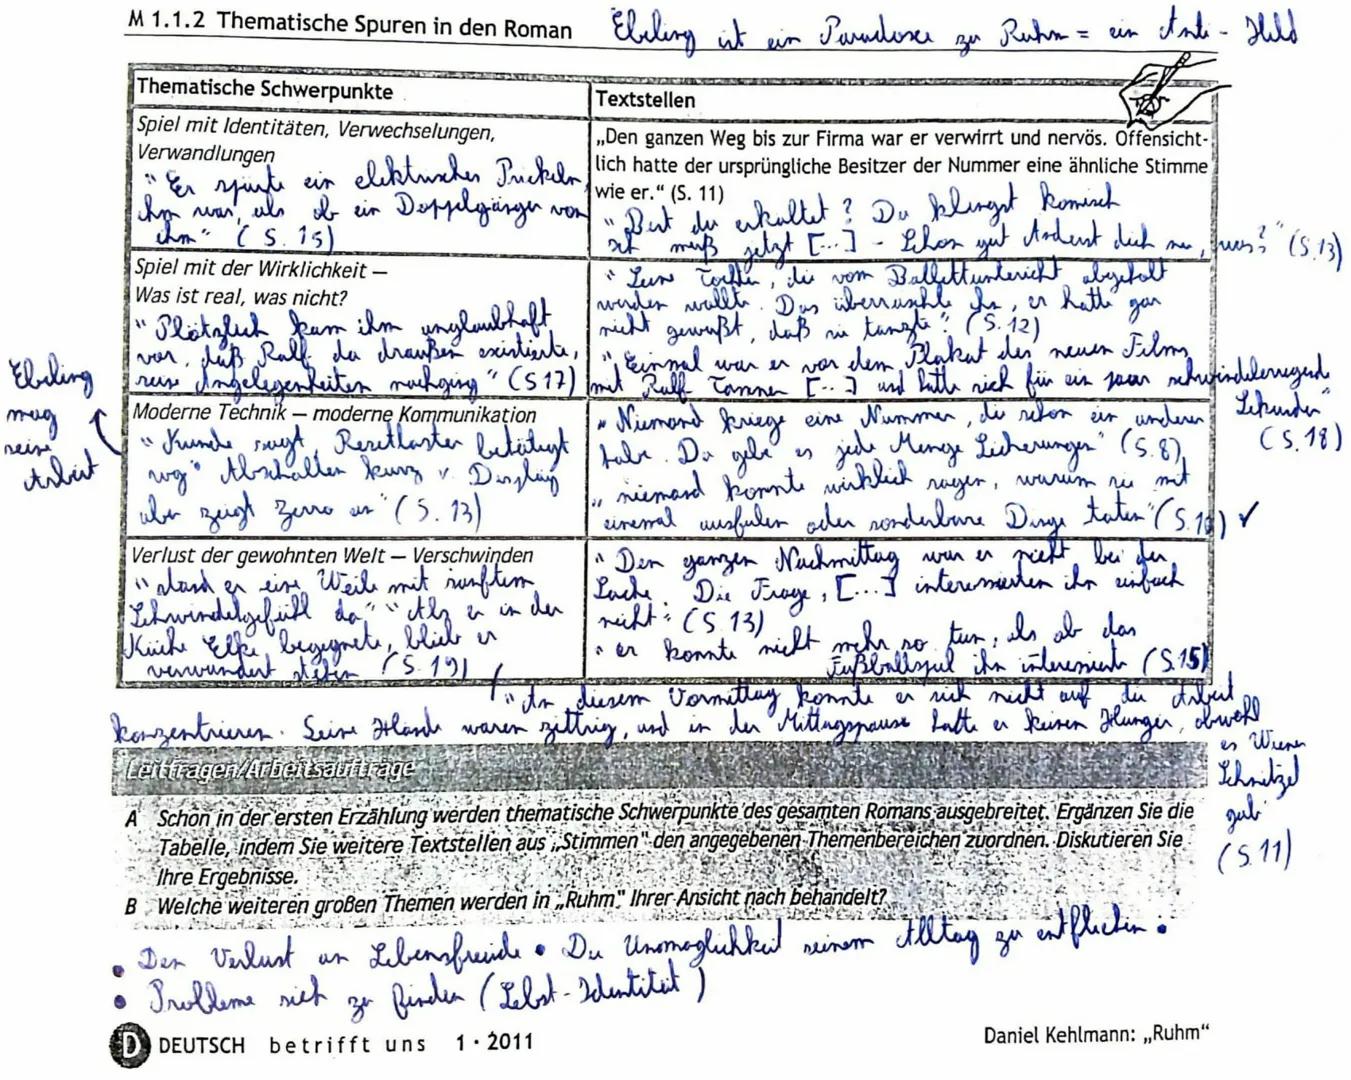 M 1.1.2 Thematische Spuren in den Roman
Ebeling ist ein Paradoxe zu Ruhm = ein Anti-Held
Thematische Schwerpunkte
Textstellen
Spiel mit Identitäten, Verwechselungen,
Verwandlungen
"Er spürte ein elektrisches Prickeln,
ihm war, als ob ein Doppelgänger von
ihm" (S. 15)
„Den ganzen Weg bis zur Firma war er verwirrt und nervös. Offensicht-
lich hatte der ursprüngliche Besitzer der Nummer eine ähnliche Stimme
wie er.“ (S. 11)
"Bist du erkältet? Du klingst komisch
ich muß jetzt [...] - Schon gut Änderst dich nie, was?" (S.13)
Spiel mit der Wirklichkeit —
Was ist real, was nicht?
"Plötzlich kam ihm unglaubhaft
vor, daß Ralf da draußen existierte,
seine Angelegenheiten nachging" (S17)
"Seine Tochter, die vom Ballettunterricht abgeholt
werden wollte. Das überraschte ihn, er hatte gar
nicht gewußt, daß sie tanzte". (S. 12)
"Einmal war er vor dem Plakat des neuen Films
mit Ralf Tanner [...] und hatte sich für ein paar schwindelerregende
Sekunden"
(S. 18)
Ebeling
mag
seine
Arbeit
Moderne Technik — moderne Kommunikation
"Kunde sagt, Resettaster betätigt
wg Abschalten kurz v. Display
aber zeigt Zerro an" (S. 13)
"Niemand kriege eine Nummer, die schon ein anderer
habe. Da gebe es jede Menge Sicherungen" (S. 8),
"niemand konnte wirklich sagen, warum sie mit
einemal ausfielen oder sonderbare Dinge taten" (S.10) ✓
Verlust der gewohnten Welt — Verschwinden
"stand er eine Weile mit sanftem
Schwindelgefühl da" "Als er in der
Küche Elke begegnete, blieb er
verwundert stehen (S. 19)
"Den ganzen Nachmittag war er nicht bei der
Sache. Die Frage, [...] interessierten ihn einfach
nicht" (S. 13)
"er konnte nicht mehr so tun, als ob das
Fußballspiel ihn interessierte (S.15)
"An diesem Vormittag konnte er sich nicht auf die Arbeit
konzentrieren. Seine Hände waren zittrig, und in der Mittagspause hatte er keinen Hunger, obwohl
es Wiener
Schnitzel
gab"
(S.11)
Leitfragen/Arbeitsaufträge
A Schon in der ersten Erzählung werden thematische Schwerpunkte des gesamten Romans ausgebreitet. Ergänzen Sie die
Tabelle, indem Sie weitere Textstellen aus „Stimmen“ den angegebenen Themenbereichen zuordnen. Diskutieren Sie
Ihre Ergebnisse.
B Welche weiteren großen Themen werden in „Ruhm“ Ihrer Ansicht nach behandelt?
• Der Verlust an Lebensfreude • Die Unmöglichkeit seinem Alltag zu entfliehen •
• Probleme sich zu finden (Selbst-Identität)
D DEUTSCH betrifft uns 1 · 2011
Daniel Kehlmann: „Ruhm“